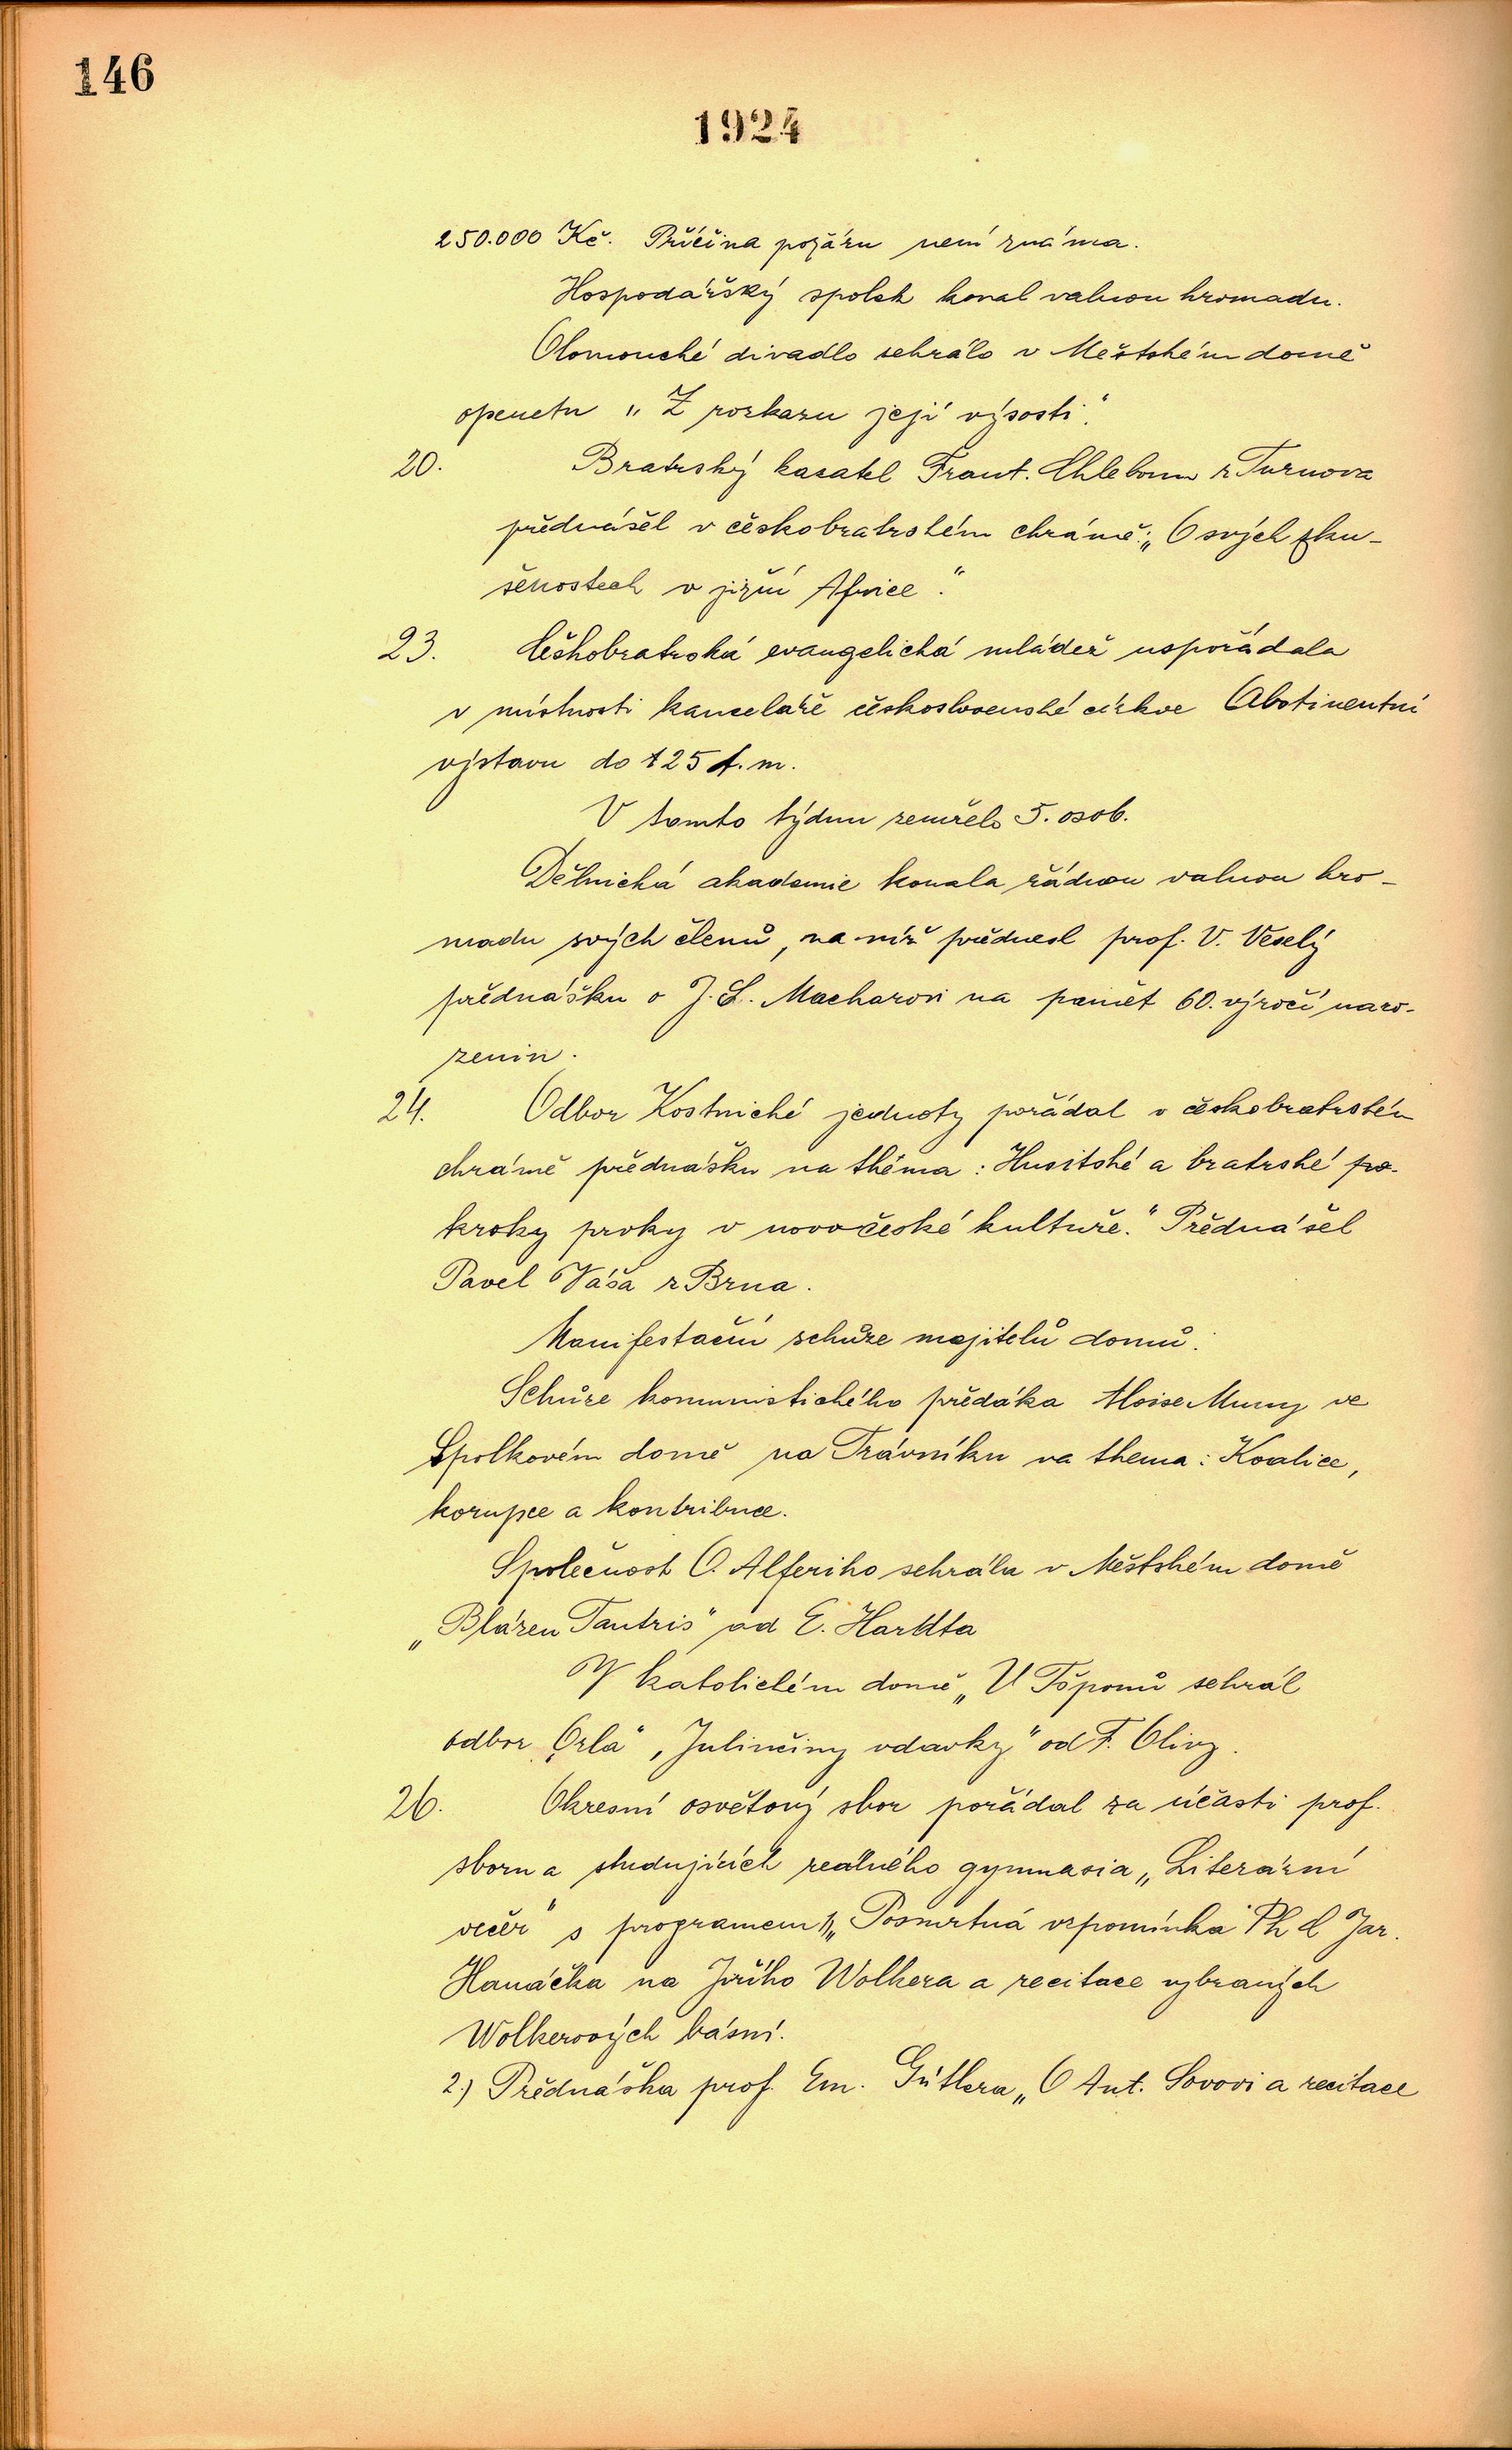 146
1924
250.000 Kč. Příčina požáru není známa.
Hospodářský spolek konal valnou hromadu.
Olomoucké divadlo sehrálo v Městském domě
operetu „Z rozkazu její výsosti."
20. Bratrský kazatel Frant. Chleboun z Turnova
přednášel v českobratrském chrámě: „O svých zku-
šenostech v jižní Africe."
23. Českobratrská evangelická mládež uspořádala
v místnosti kanceláře československé církve Abstinentní
výstavu do 125 t. m.
V tomto týdnu zemřelo 5. osob.
Dělnická akademie konala řádnou valnou hro-
madu svých členů, na níž přednesl prof. V. Veselý
přednášku o J. S. Macharovi na paměť 60. výročí naro-
zenin.
24. Odbor Kostnické jednoty pořádal v českobratrském
chrámě přednášku na théma: Husitské a bratrské po-
kroky prvky v novočeské kultuře." Přednášel
Pavel Váša z Brna.
Manifestační schůze majitelů domů.
Schůze komunistického předáka Aloise Muny ve
Spolkovém domě na Trávníku na thema: Koalice,
korupce a kontribuce.
Společnost O. Alferiho sehrála v Městském domě
„Blázen Tantris" od E. Hardta
V katolickém domě „U Töponů sehrál
odbor „Orla" „Julinčiny vdavky" od F. Olivy.
26. Okresní osvětový sbor pořádal za účasti prof.
sboru a studujících reálného gymnasia „Literární
večer" s programem 1, „Posmrtná vzpomínka Ph d Jar.
Hanáčka na Jiřího Wolkera a recitace vybraných
Wolkerových básní.
2.) Přednáška prof. Em. Gütlera „O Ant. Sovovi a recitace